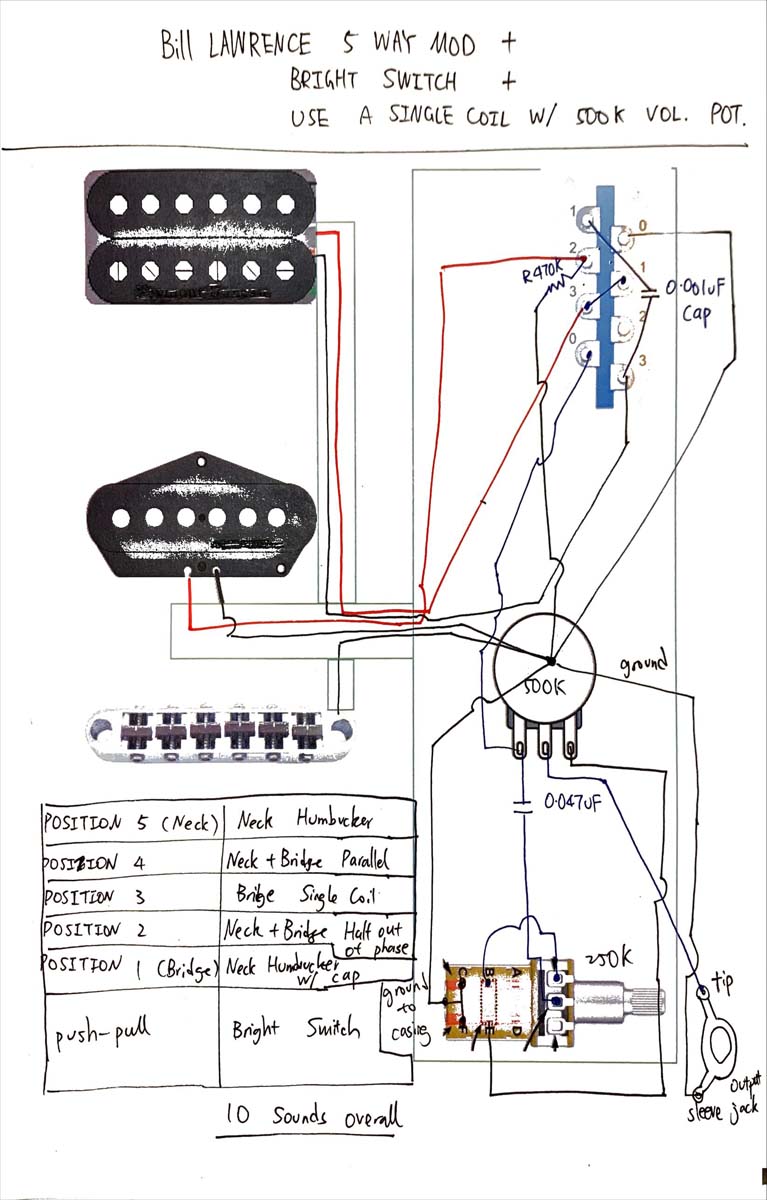 Bill LAWRENCE 5 WAY MOD +
BRIGHT SWITCH +
USE A SINGLE COIL W/ 500K VOL. POT.
1
0
2
R470K
1
0.001uF
Cap
3
2
0
3
ground
500K
0.047uF
POSITION 5 (Neck) Neck Humbucker
POSITION 4 Neck + Bridge Parallel
POSITION 3 Bridge Single Coil
POSITION 2 Neck + Bridge Half out of phase
POSITION 1 (Bridge) Neck Humbucker w/ cap
push-pull Bright Switch
ground
to
casing
C B A
F E D
250K
tip
output
sleeve jack
10 Sounds overall